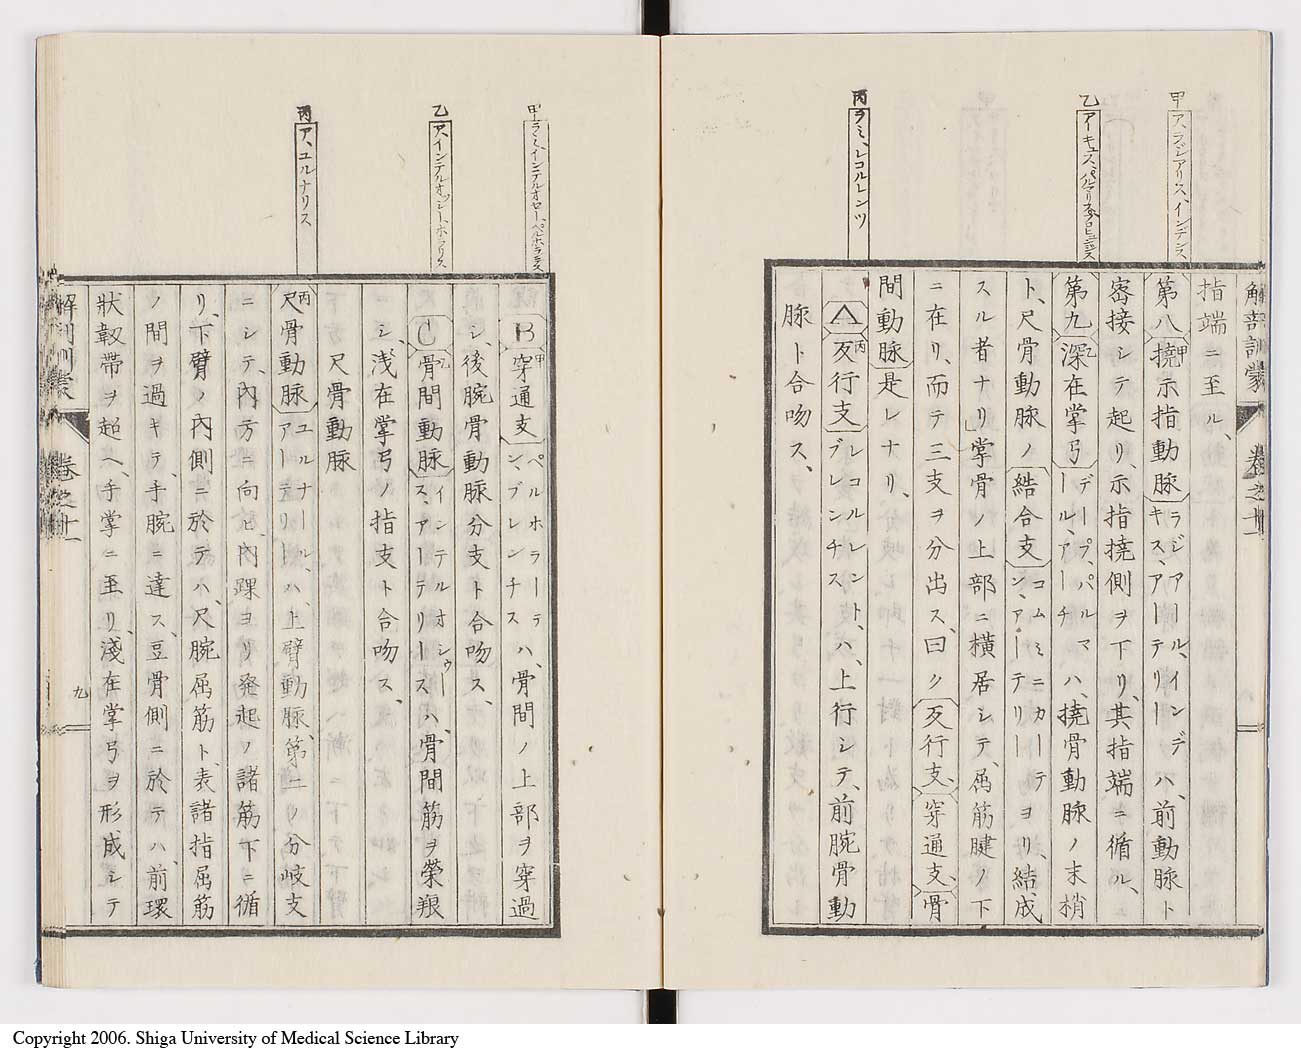 甲 ア、ラジアリス、インデンス
乙
丙 ラミ、レコルレンツ
解剖訓蒙 卷之十一
指端ニ至ル、
第八 撓示指動脈 甲 ラジアール、インデキス、アーテリー ハ、前動脈ト
密接シテ起リ、示指撓側ヲ下リ、其指端ニ循ル、
第九 深在掌弓 乙 デープ、パルマール、アーチ ハ、撓骨動脈ノ末梢
ト、尺骨動脈ノ 結合支 コムミニカーテン、アーテリー ヨリ、結成
スル者ナリ」掌骨ノ上部ニ横居シテ、屈筋腱ノ下
ニ在リ、而テ三支ヲ分出ス、曰ク 歹行支、穿通支、骨
間動脈 是レナリ、
A 歹行支 丙 レコルレント、ブレンチス ハ、上行シテ、前腕骨動
脉ト合吻ス、
甲 ラミ、インテルオセー、ペルホランテス
乙 ア、インテルオッシー、ホラリス
丙 ア、ユルナリス
B 穿通支 甲 ペルホラーテン、ブレンチス ハ、骨間ノ上部ヲ穿過
シ、後腕骨動脈分支ト合吻ス、
C 骨間動脈 乙 インテルオシゥース、アーテリース ハ、骨間筋ヲ榮飛
シ、浅在掌弓ノ指支ト合吻ス、
尺骨動脈
尺骨動脈 丙 ユルナール、アーテリー ハ、上臂動脉、第二ノ分岐支
ニシテ、内方ニ向ヒ、内踝ヨリ発起ノ諸筋下ニ循
リ、下臂ノ内側ニ於テハ、尺腕屈筋ト、表諸指屈筋
ノ間ヲ過キテ、手腕ニ達ス、豆骨側ニ於テハ、前環
状靱帯ヲ超ヘ、手掌ニ至リ、淺在掌弓ヲ形成シテ
解剖訓蒙 卷之十一 九
Copyright 2006. Shiga University of Medical Science Library